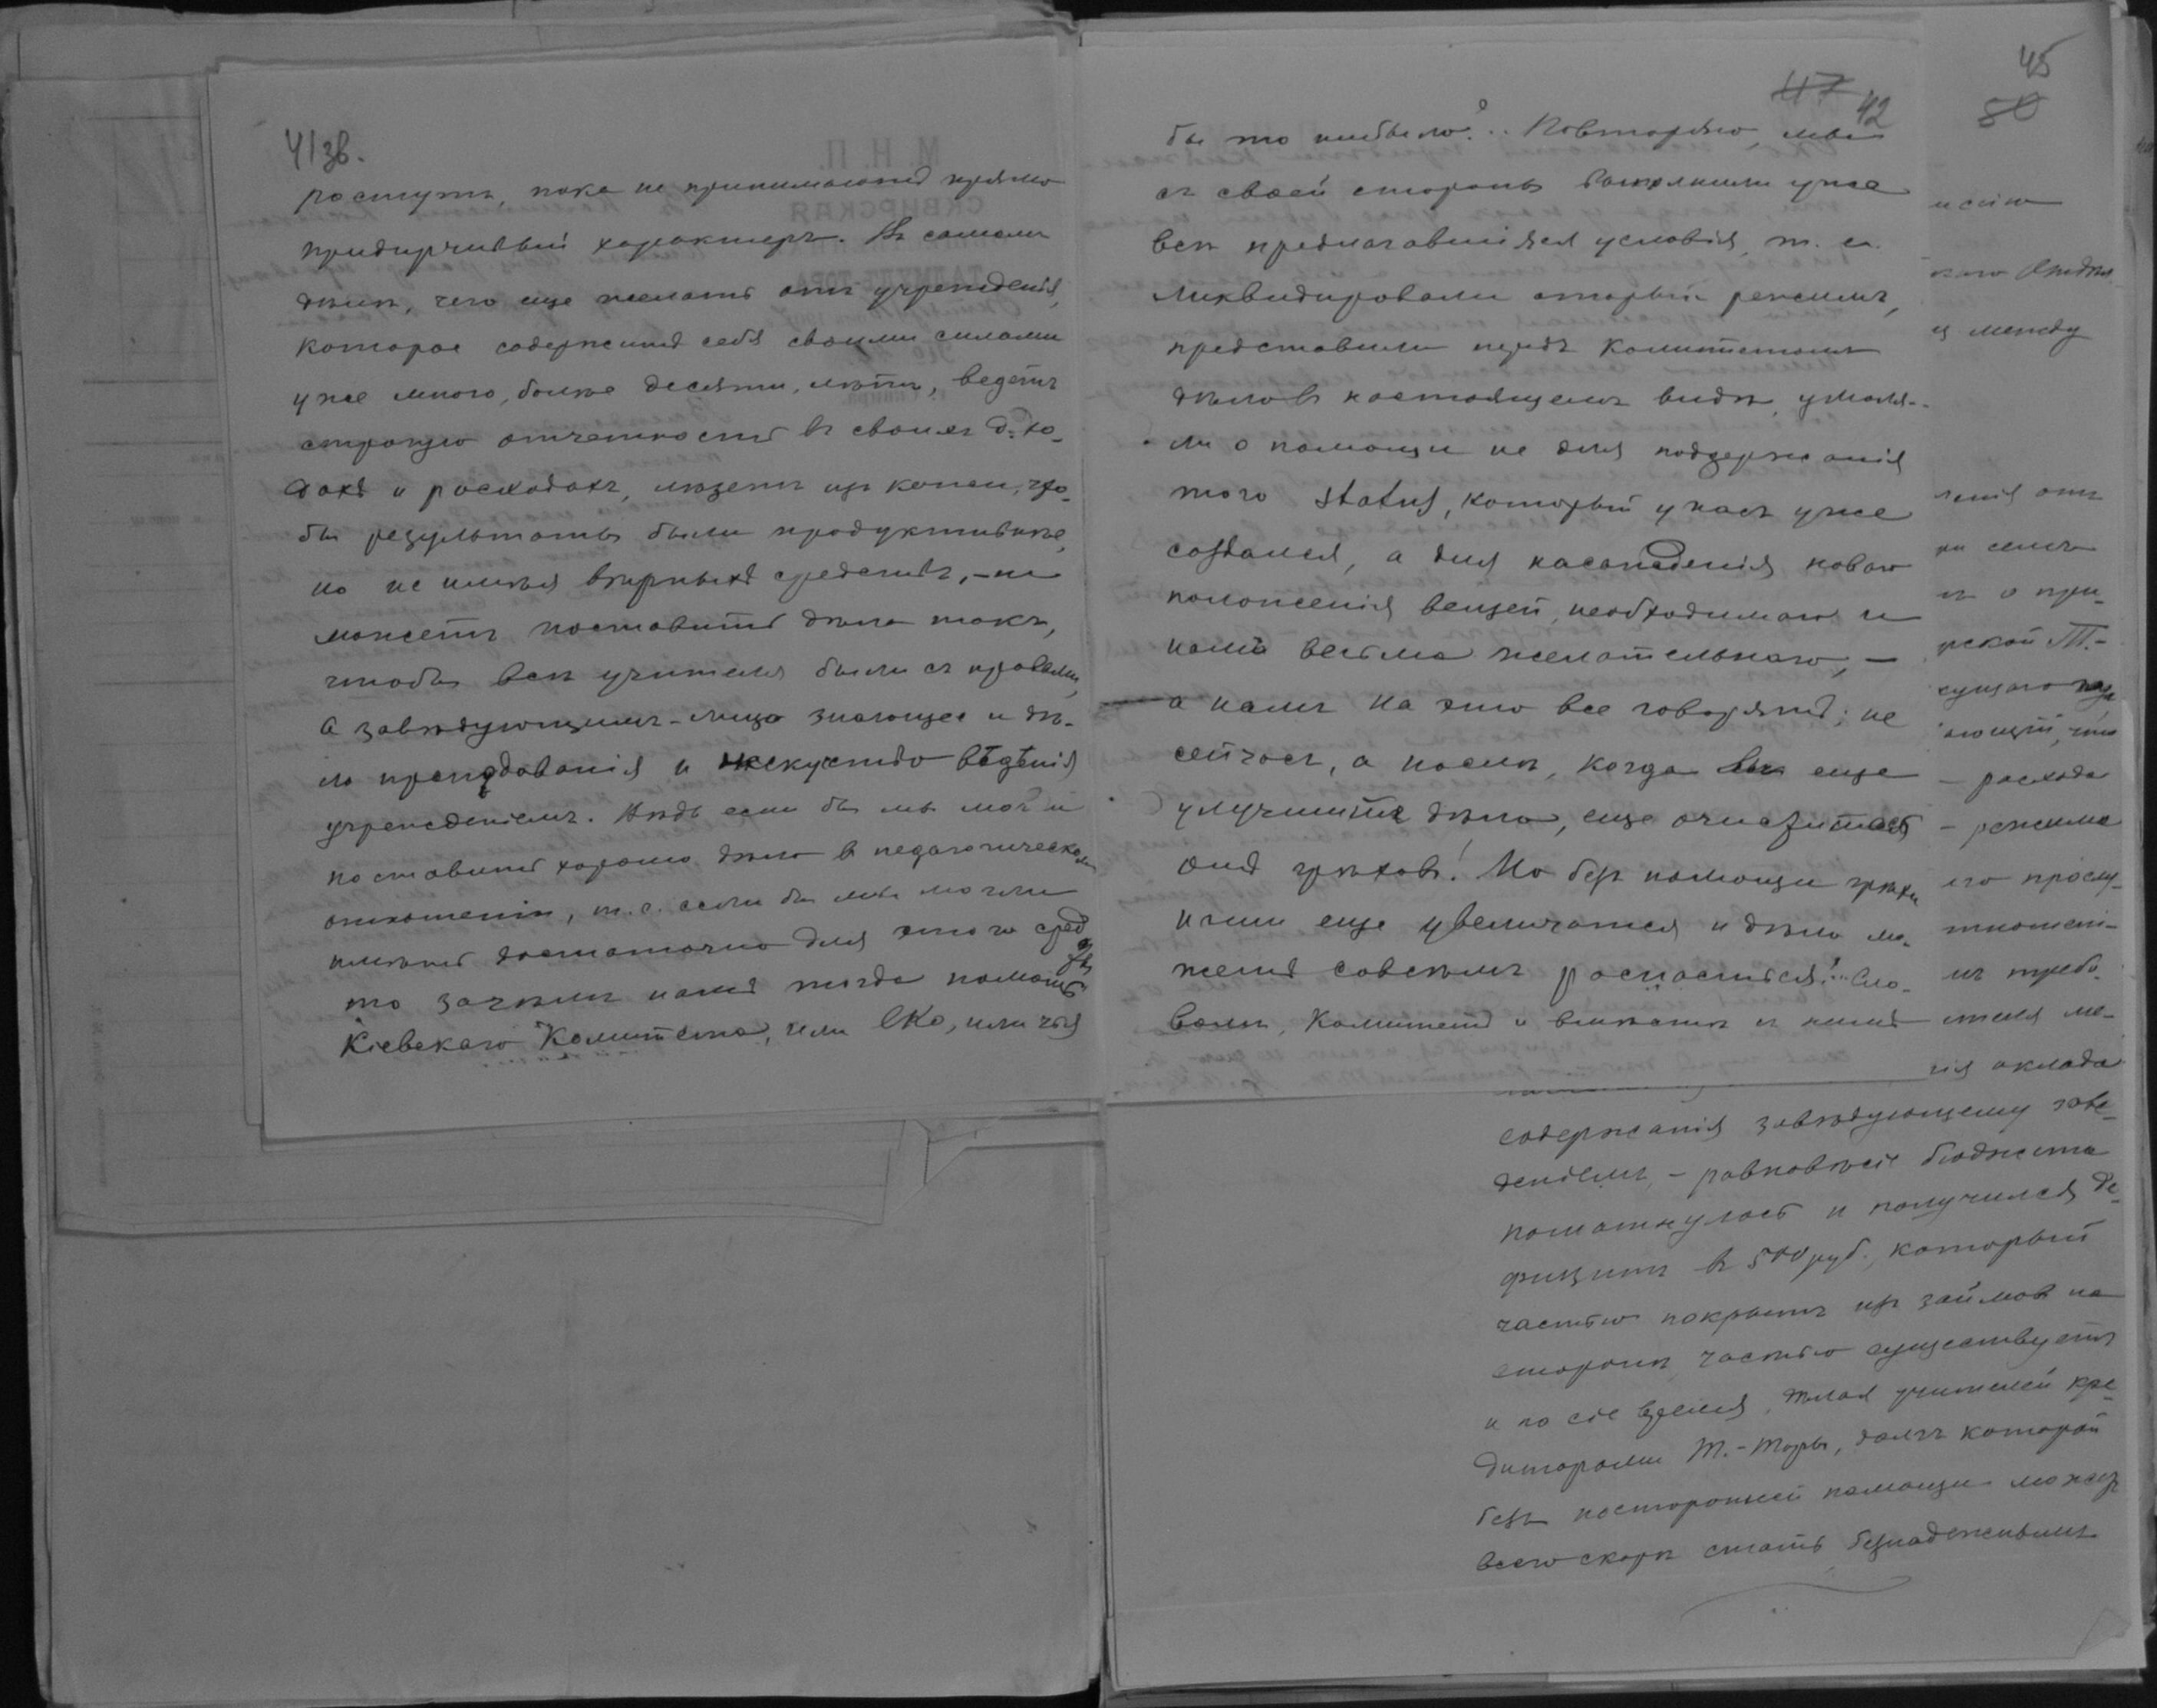 41зв.
ростутъ, пока не принимаютъ прямо
придирчивый характеръ. Въ самомъ
дѣлѣ, чего еще желать отъ учрежденія,
которое содержитъ себя своими силами
уже много, болѣе десяти, лѣтъ, ведетъ
строгую отчетность въ своихъ дохо-
дахъ и расходахъ, лѣзетъ изъ кожи, что-
бы результаты были продуктивнѣе,
но не имѣя вѣрныхъ средствъ, – не
можетъ поставить дѣло такъ,
чтобы всѣ учителя были съ правами,
а завѣдующимъ – лицо знающее и дѣ-
ло преподаванія и искуство вѣдѣнія
учрежденіемъ. Вѣдь если бы мы могли
поставить хорошо дѣло въ педагогическомъ
отношеніи, т.е. если бы мы могли
имѣть достаточно для этого средствъ
то зачѣмъ намъ тогда помощь
Кіевскаго Комитета, или ЕКО, или чья
47
42
бы то нибыло?.. Повторяю, мы
съ своей стороны выполнили уже
всѣ предлагавшіяся условія, т. е.
ликвидировали старый режимъ,
представили передъ Комитетомъ
дѣло въ настоящемъ видѣ, умоля-
ли о помощи не для поддержанія
того status, который у насъ уже
создался, а для насажденія новаго
положенія вещей, необходимаго и
намъ весьма желательнаго, –
а намъ на это все говорятъ: не
сейчасъ, а послѣ, когда вы еще
улучшите дѣло, еще очиститесь
отъ грѣховъ! Но безъ помощи грѣхи
наши еще увеличатся и дѣло мо-
жетъ совсѣмъ распасться!.. Сло-
вомъ, Комитетъ и
45
80
между
ленія отъ
о при-
рской Т.-
– расхода
– режима
его прослу-
тношені-
мъ требо-
ителя ме-
нія оклада
содержанія завѣдующему заве-
деніемъ, – равновѣсіе бюджета
пошатнулось и получился де-
фицитъ въ 500 руб., который
частью покрытъ изъ займовъ на
сторонѣ, частью существуетъ
и по сіе время, дѣлая учителей кре-
диторами Т.-Торы, долгъ которой
безъ посторонней помощи можетъ
всего скорѣ стать безнадежнымъ